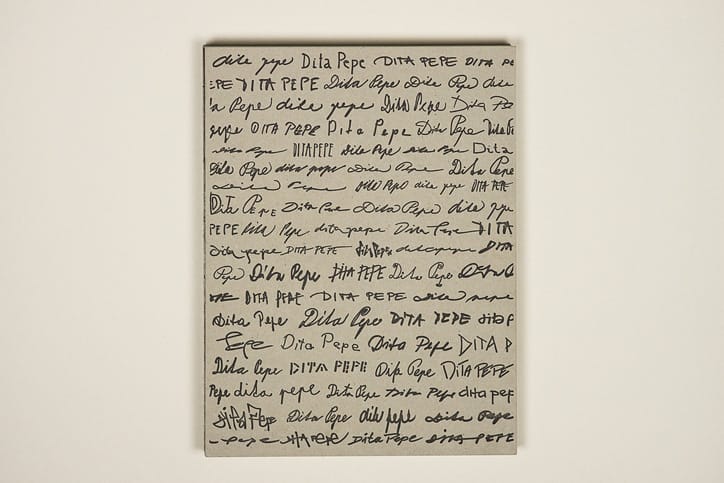 dita pepe Dita Pepe DITA PEPE DITA PE
EPE DITA PEPE Dita Pepe Dita Pepe dita
a Pepe dita pepe Dita Pepe Dita Pe
pepe DITA PEPE Dita Pepe Dita Pepe Dita Pe
Dita Pepe DITA PEPE Dita Pepe Dita Pepe Dita
Dita Pepe dita pepe Dita Pepe Dita Pepe
Dita Pepe Dita Pepe dita pepe DITA PEPE
DiTA PEPE Dita Pepe Dita Pepe dita pepe
PEPE Dita Pepe dita pepe Dita Pepe DITA
Dita pepe DITA PEPE Dita Pepe dita pepe DITA
Pepe Dita Pepe DITA PEPE Dita Pepe Dita
DITA PEPE DITA PEPE Dita pepe
Dita Pepe Dita Pepe DITA PEPE dita P
Pepe Dita Pepe Dita Pepe DITA P
Dita Pepe DITA PEPE Dita Pepe DiTA PEPE
Pepe dita pepe Dita Pepe Dita Pepe dita pep
Dita Pepe Dita Pepe dita pepe Dita Pepe
pepe DITA PEPE Dita Pepe DITA PEPE